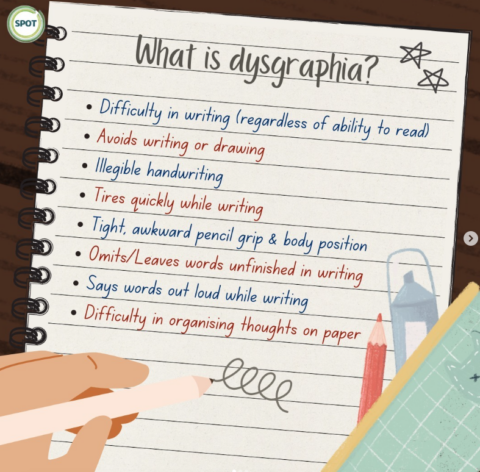 SPOT
What is dysgraphia?
• Difficulty in writing (regardless of ability to read)
• Avoids writing or drawing
• Illegible handwriting
• Tires quickly while writing
• Tight, awkward pencil grip & body position
• Omits/Leaves words unfinished in writing
• Says words out loud while writing
• Difficulty in organising thoughts on paper